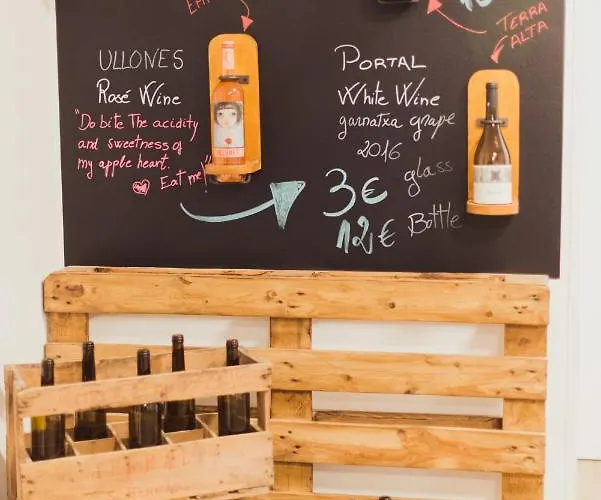 ULLONES
Rosé Wine
"Do bite The acidity
and sweetness of
my apple heart.
Eat me!"
TERRA
ALTA
PORTAL
White Wine
garnatxa grape
2016
3€ glass
12€ Bottle